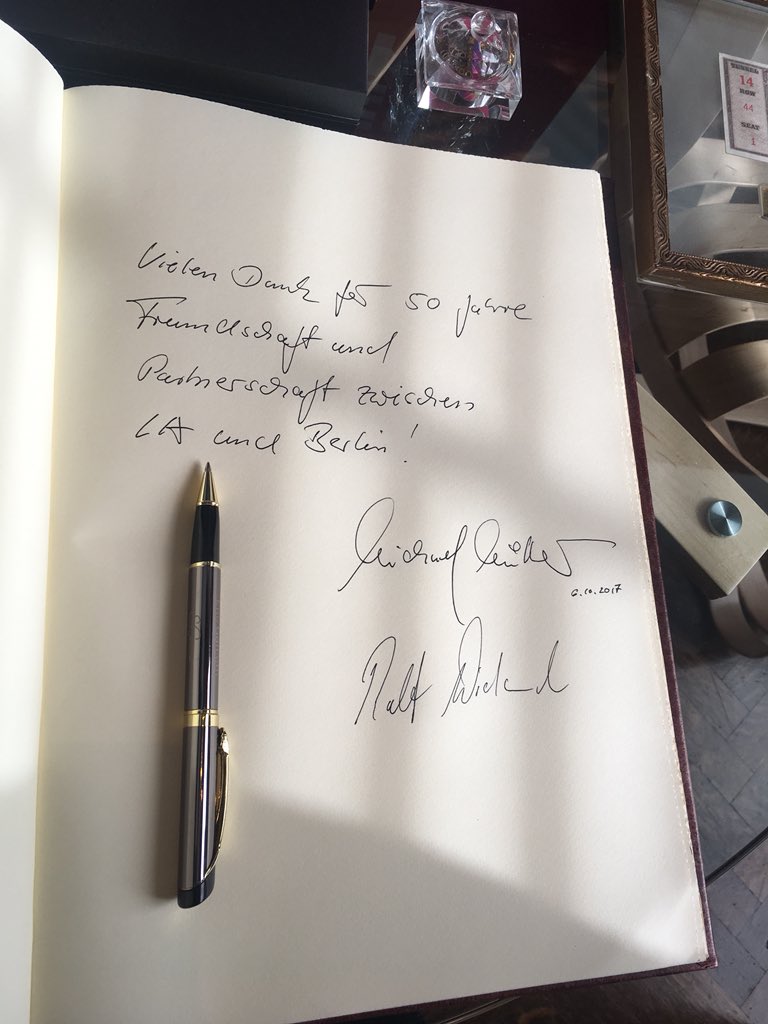 TUNNEL
14
ROW
44
SEAT
1
Vielen Dank für 50 Jahre
Freundschaft und
Partnerschaft zwischen
LA und Berlin!
Michael Müller
6.10.2017
Ralf Wieland